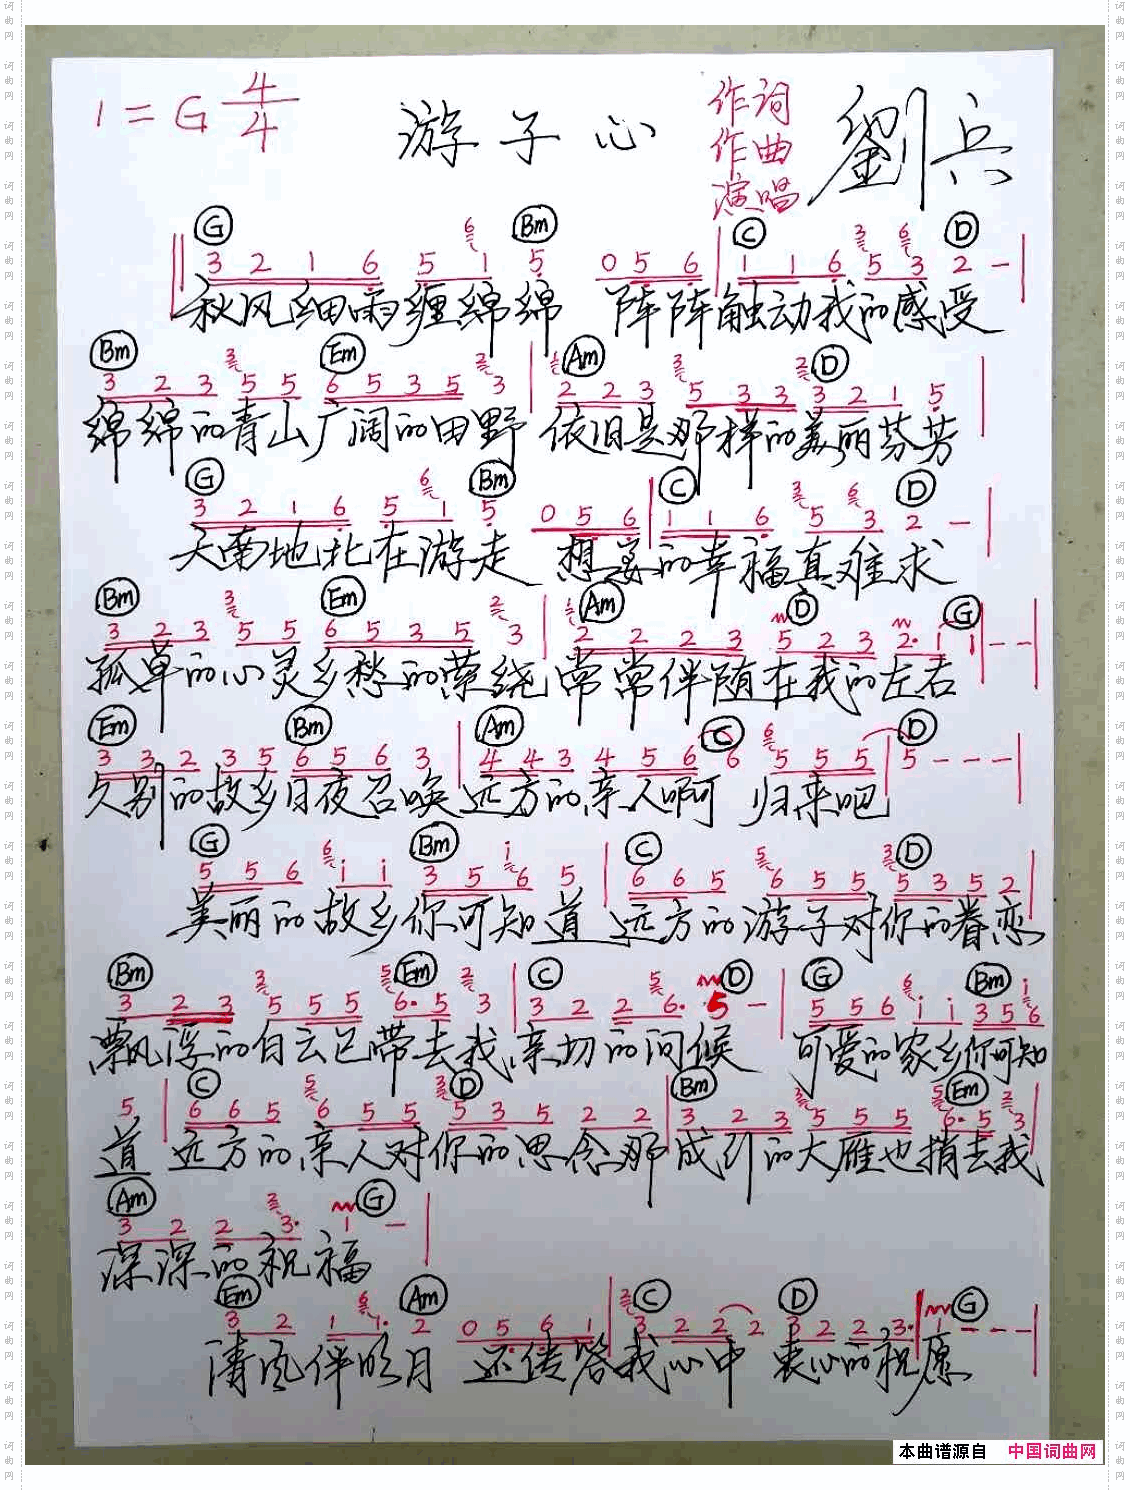 1=G 4/4 游子心 作词 作曲 演唱 劉兵
G Bm C D
3 2 1 6 5 1 5 0 5 6 1 1 6 5 3 2 -
秋风细雨缠绵绵 阵阵触动我的感受
Bm Em Am D
3 2 3 5 5 6 5 3 5 3 2 2 3 5 3 3 3 2 1 5
绵绵的青山广阔的田野 依旧是那样的美丽芬芳
G Bm C D
3 2 1 6 5 1 5 0 5 6 1 1 6 5 3 2 -
天南地北在游走 想美的幸福真难求
Bm Em Am D G
3 2 3 5 5 6 5 3 5 3 2 2 2 3 5 2 3 2· 1 1 - -
孤单的心灵乡愁的萦绕 常常伴随在我的左右
Em Bm Am C D
3 3 2 3 5 6 5 6 3 4 4 3 4 5 6 6 5 5 5 5 - - -
久别的故乡日夜召唤 远方的亲人啊 归来吧
G Bm C D
5 5 6 i i 3 5 6 5 6 6 5 6 5 5 5 3 5 2
美丽的故乡你可知道 远方的游子对你的眷恋
Bm Em C D G Bm
3 2 3 5 5 5 6· 5 3 3 2 2 6· 5 - 5 5 6 i i 3 5 6
飘浮的白云已带去我亲切的问候 可爱的家乡你可知
C D Bm Em
5 6 6 5 6 5 5 5 3 5 2 2 3 2 3 5 5 5 6· 5 3
道 远方的亲人对你的思念那成行的大雁也捎去我
Am G
3 2 2 3· 1 -
深深的祝福
Em Am C D G
3 2 1 1· 2 0 5 6 1 3 2 2 2 3 2 2 3· 1 - - -
清风伴明月 还偿答我心中 衷心的祝愿
本曲谱源自 中国词曲网